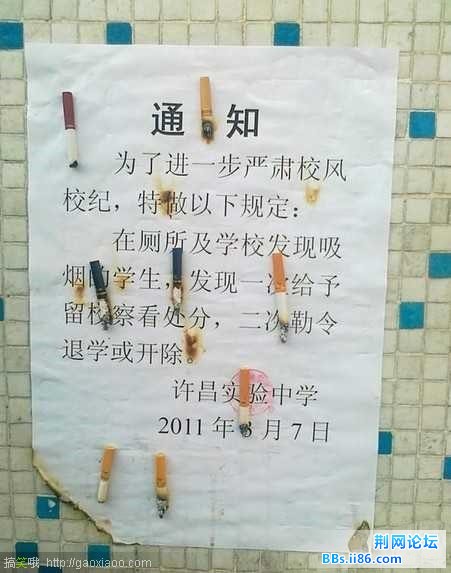 通 知
为了进一步严肃校风
校纪，特做以下规定：
在厕所及学校发现吸
烟的学生，发现一次给予
留校察看处分，二次勒令
退学或开除。
许昌实验中学
2011 年 月 7 日
搞笑哦 http://gaoxiaoo.com
荆网论坛
BBs.ii86.com